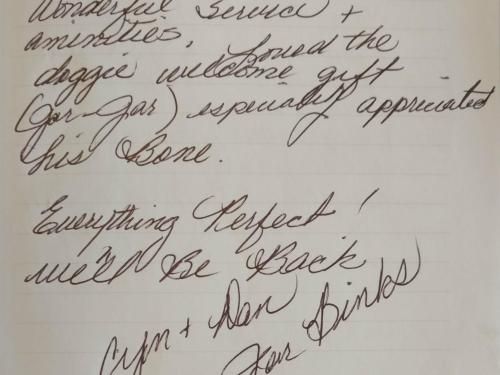 Wonderful Service +
aminities, Loved the
doggie welcome gift
(Jar-Jar) especially appriciated
his Bone.
Everything Perfect!
we'll Be Back
Cyn + Dan
Jar Binks